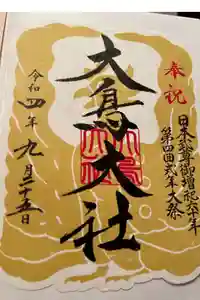 奉祝
日本武尊御増祀六十年
第四回式年大祭
大鳥大社
令和四年九月二十五日